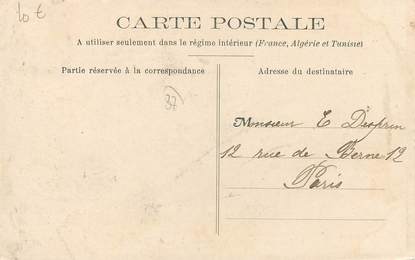 10 €
CARTE POSTALE
A utiliser seulement dans le régime intérieur (France, Algérie et Tunisie)
Partie réservée à la correspondance
Adresse du destinataire
37
Monsieur E Desprin
12 rue de Berne 12
Paris